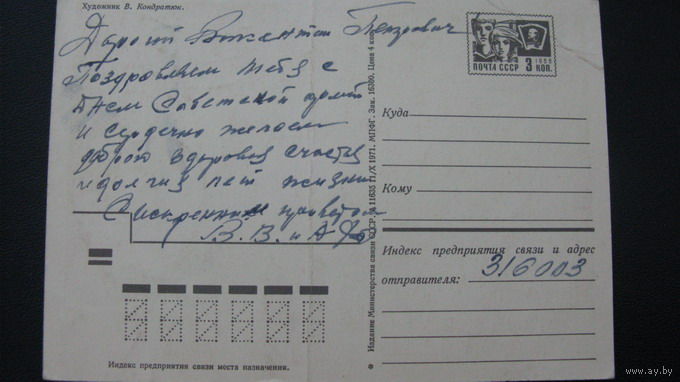 Художник В. Кондратюк.
Дорогой Викентий Петрович
Поздравляем тебя с
днем Советской армии
и сердечно желаем
доброго здоровья счастья
и долгих лет жизни
С искренним приветом
В. В. и А
ПОЧТА СССР 3 КОП.
1966
Куда
Кому
Индекс предприятия связи и адрес
отправителя: 316003
Издание Министерства связи СССР. 11635 11/X 1971. МПФГ. Зак. 16360. Цена 4 коп.
Индекс предприятия связи места назначения.
www.ay.by